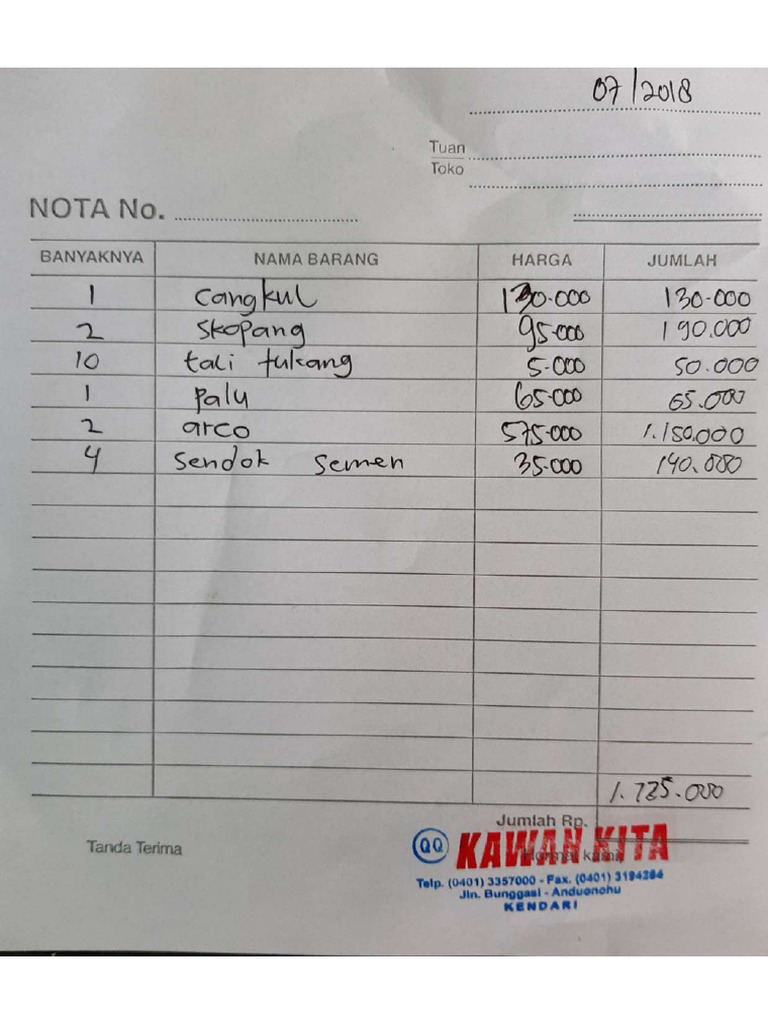 07/2018
Tuan
Toko
NOTA No.
BANYAKNYA NAMA BARANG HARGA JUMLAH
1 Cangkul 130.000 130.000
2 Skopang 95.000 190.000
10 tali tukang 5.000 50.000
1 palu 65.000 65.000
2 arco 575.000 1.150.000
4 Sendok Semen 35.000 140.000
1.725.000
Jumlah Rp.
Tanda Terima
QQ KAWAN KITA
Hormat kami,
Telp. (0401) 3357000 - Fax. (0401) 3194284
Jln. Bunggasi - Anduonohu
KENDARI